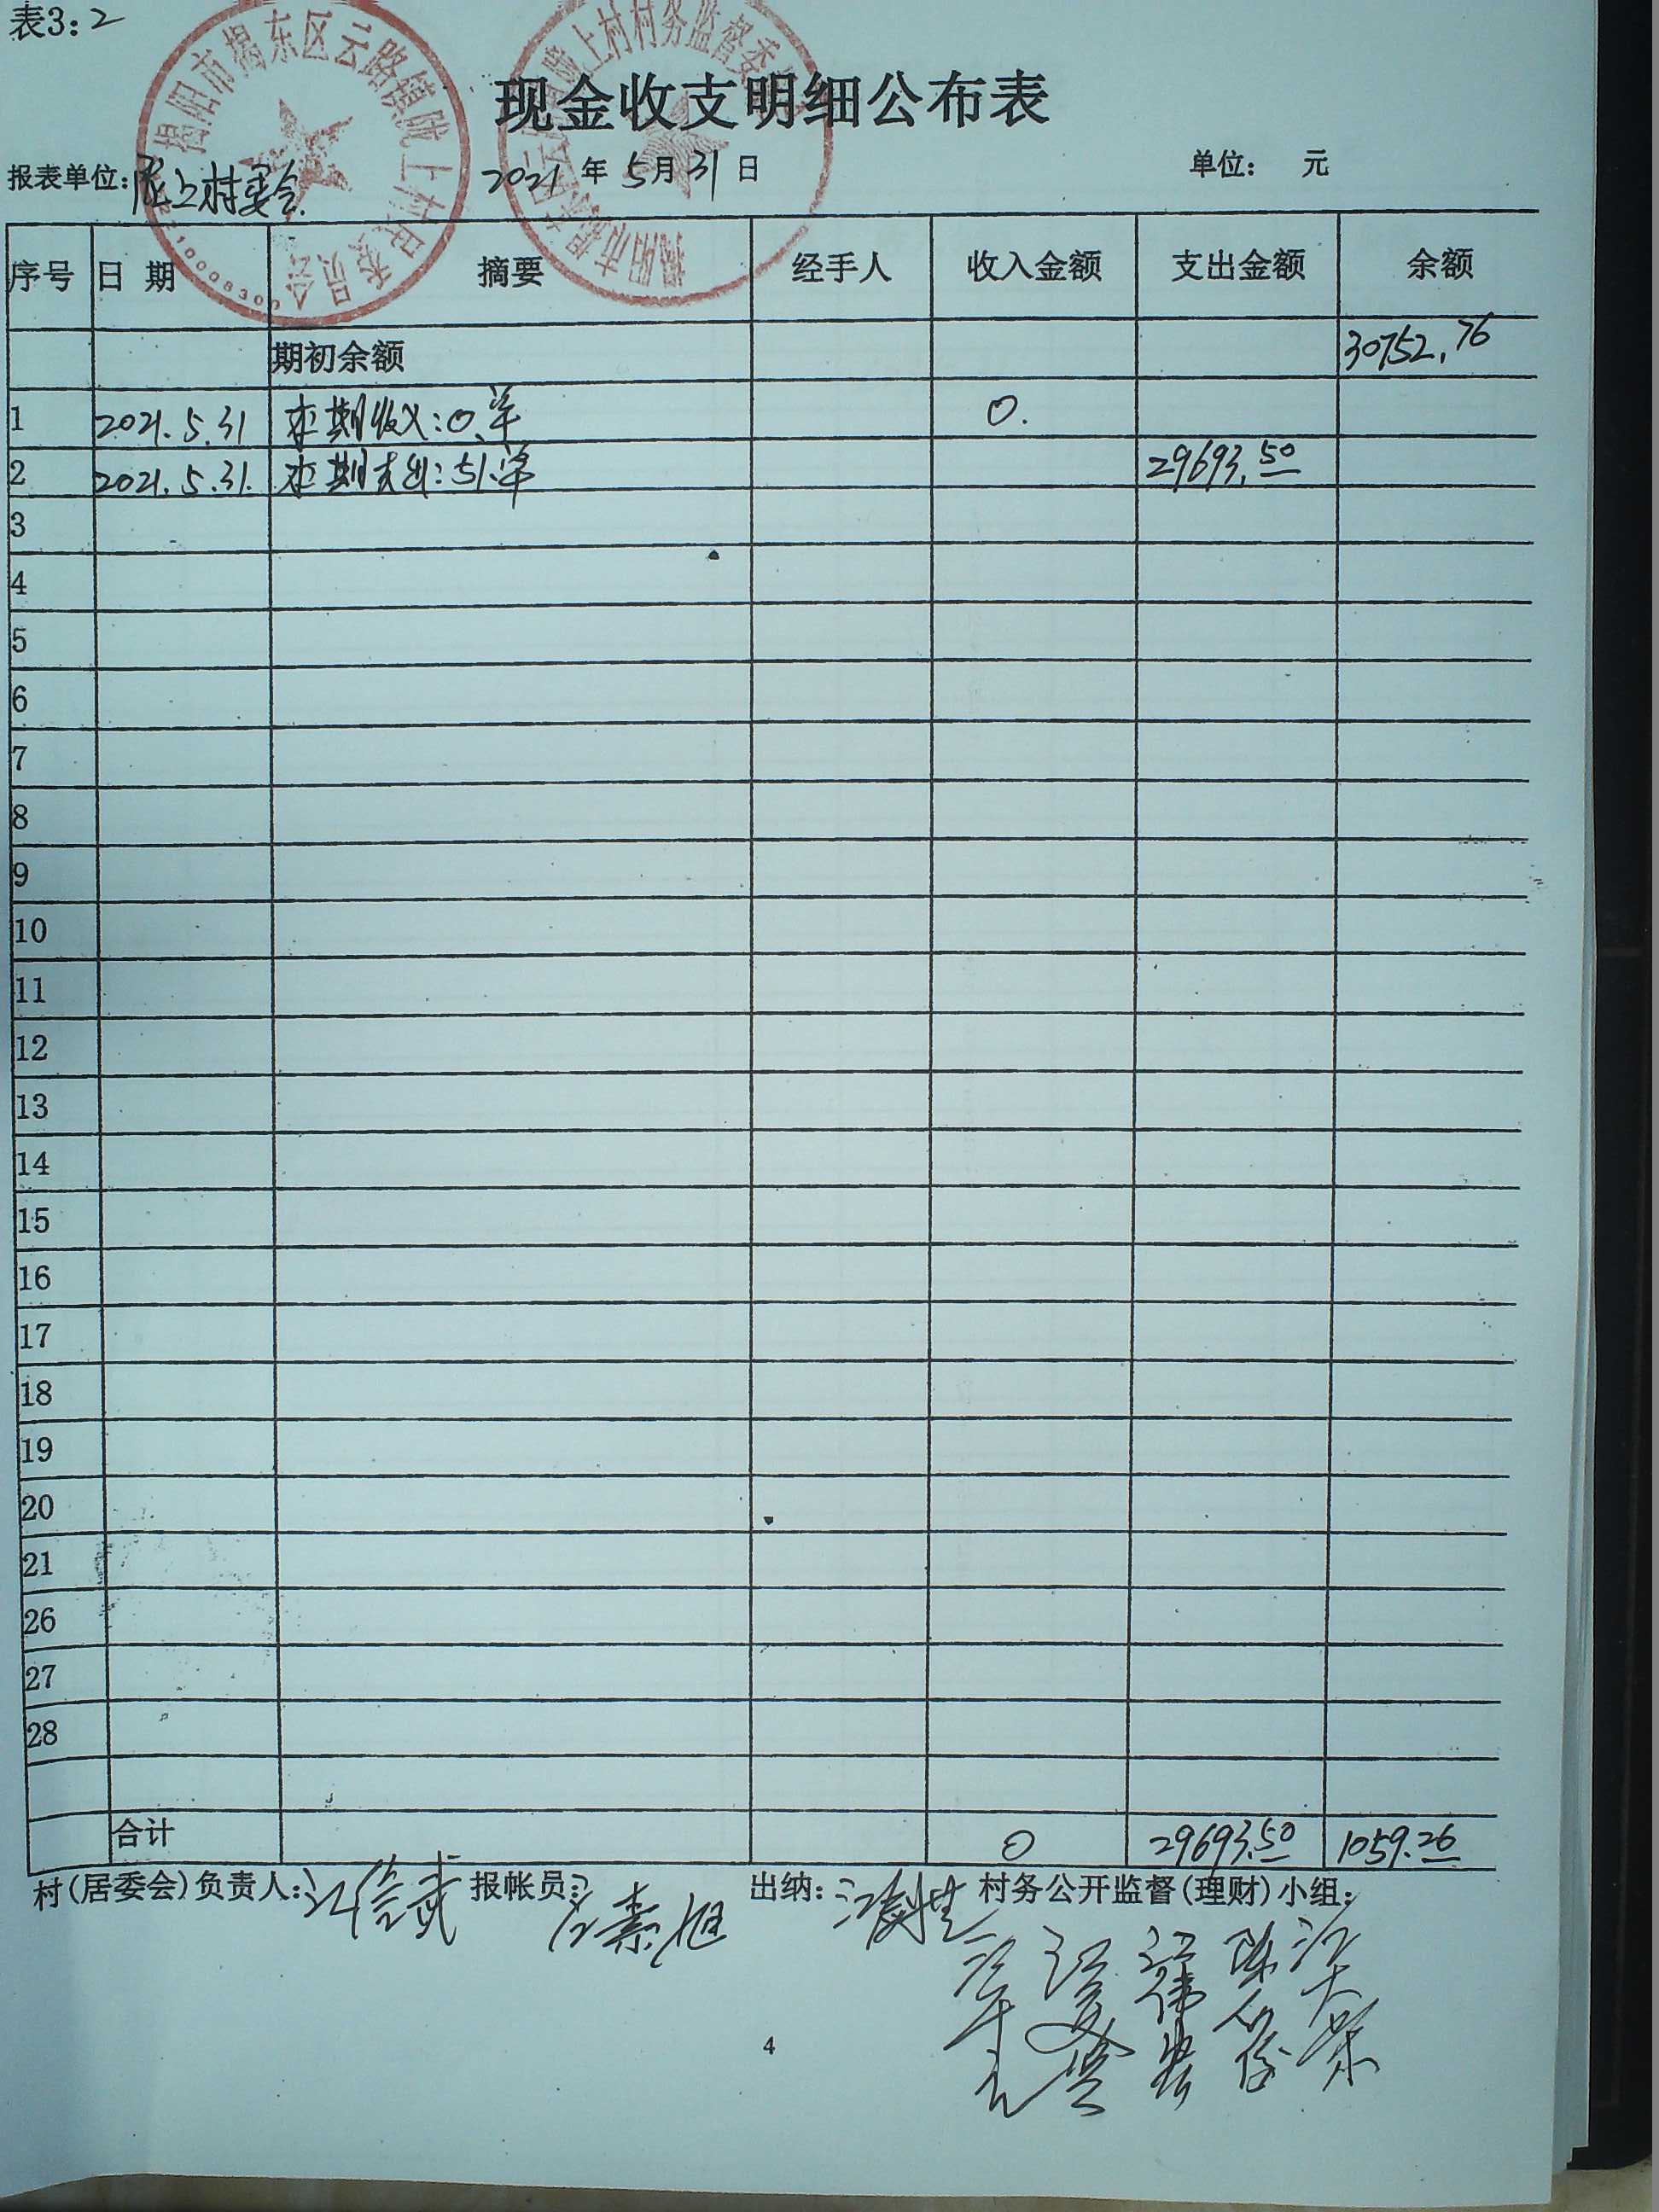 表3:2
揭阳市揭东区云路镇陇上村民委员会
陇上村村务监督委
现金收支明细公布表
报表单位:陇上村委会 2021年5月31日 单位: 元
序号 日期 摘要 经手人 收入金额 支出金额 余额
期初余额 30752.76
1 2021.5.31 本期收入:0笔 0.
2 2021.5.31. 本期支出:51笔 29693.50
3
4
5
6
7
8
9
10
11
12
13
14
15
16
17
18
19
20
21
26
27
28
合计 0 29693.50 1059.26
村(居委会)负责人: 报帐员: 出纳: 村务公开监督(理财)小组:
4